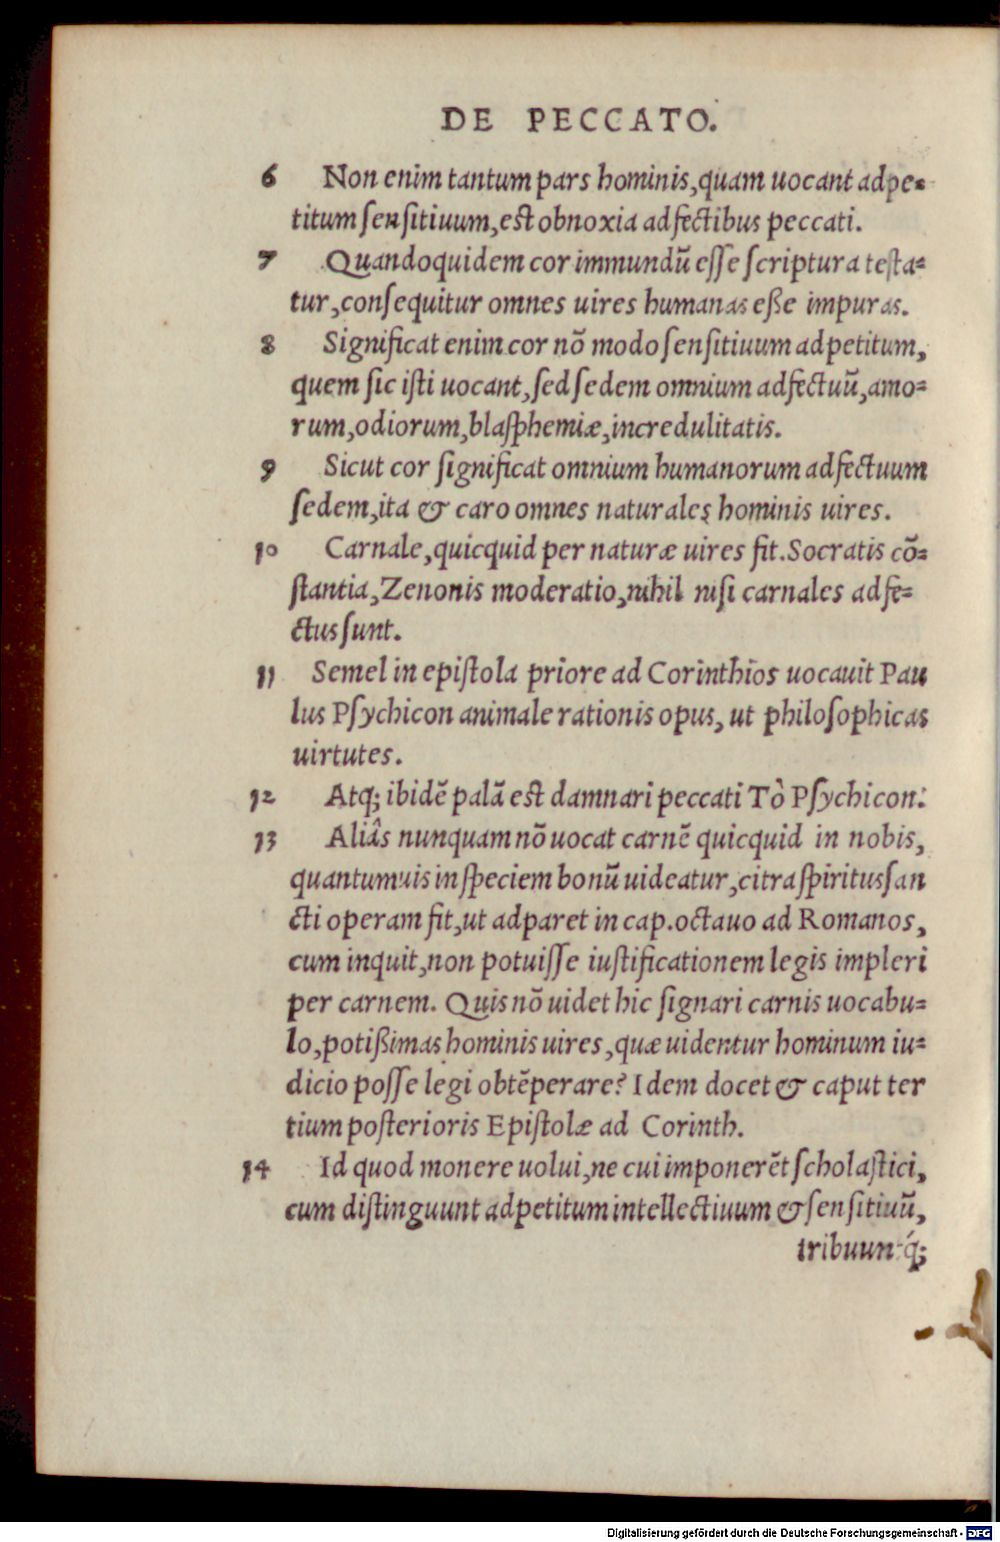 DE PECCATO.
6 Non enim tantum pars hominis,quam uocant adpe=
titum ſenſitiuum,eſt obnoxia adfectibus peccati.
7 Quandoquidem cor immundũ eſſe ſcriptura teſta=
tur,conſequitur omnes uires humanas eße impuras.
8 Significat enim cor nõ modo ſenſitiuum adpetitum,
quem ſic iſti uocant,ſed ſedem omnium adfectuũ,amo=
rum,odiorum,blaſphemiæ,incredulitatis.
9 Sicut cor ſignificat omnium humanorum adfectuum
ſedem,ita & caro omnes naturales hominis uires.
10 Carnale,quicquid per naturæ uires fit.Socratis cõ=
ſtantia,Zenonis moderatio,nihil niſi carnales adfe=
ctus ſunt.
11 Semel in epiſtola priore ad Corinthios uocauit Pau
lus Pſychicon animale rationis opus, ut philoſophicas
uirtutes.
12 Atq; ibidẽ palã eſt damnari peccati Tò Pſychicon.
13 Aliâs nunquam nõ uocat carnẽ quicquid in nobis,
quantumuis in ſpeciem bonũ uideatur,citra ſpiritus ſan
cti operam fit,ut adparet in cap.octauo ad Romanos,
cum inquit,non potuiſſe iuſtificationem legis impleri
per carnem. Quis nõ uidet hic ſignari carnis uocabu=
lo,potißimas hominis uires,quæ uidentur hominum iu=
dicio poſſe legi obtẽperare? Idem docet & caput ter
tium poſterioris Epiſtolæ ad Corinth.
14 Id quod monere uolui,ne cui imponerẽt ſcholaſtici,
cum diſtinguunt adpetitum intellectiuum & ſenſitiuũ,
tribuunt q́;
Digitalisierung gefördert durch die Deutsche Forschungsgemeinschaft - DFG